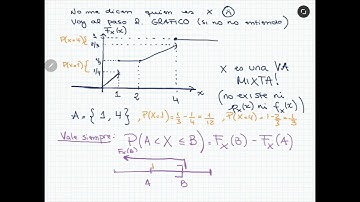 No me dicen quien es X
Voy al paso 2. GRAFICO (si no no entiendo)
F_X(x)
P(X=4){
1
2/3
P(X=1){
1/3
1/4
1
2
4
x
X es una VA
MIXTA!
(no existe ni
p_X(x) ni f_X(x))
A = {1, 4} , P(X=1) = 1/3 - 1/4 = 1/12 , P(X=4) = 1 - 2/3 = 1/3
Vale siempre: P(A < X ≤ B) = F_X(B) - F_X(A)
F_X(B)
A
B